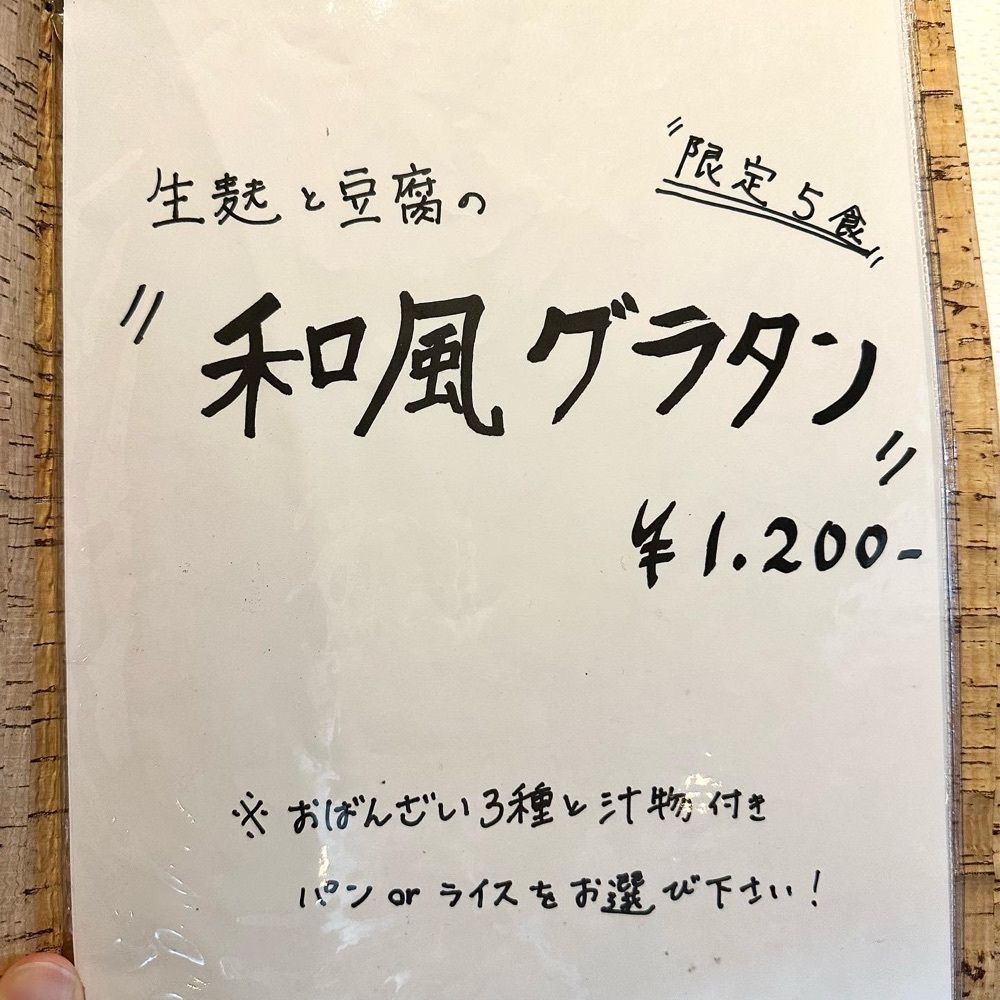 "限定5食"
生麩と豆腐の
"和風グラタン"
¥1.200-
※おばんざい3種と汁物付き
パンorライスをお選び下さい!